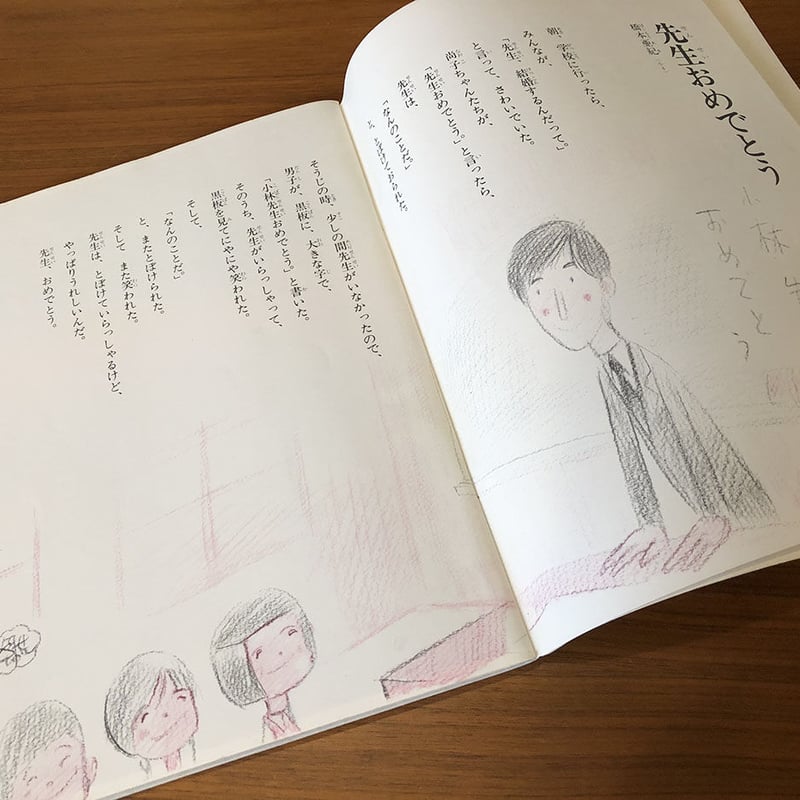 先生おめでとう
橋本亜紀
朝 学校に行ったら、
みんなが、
「先生 結婚するんだって。」
と言って、さわいでいた。
尚子ちゃんたちが、
「先生おめでとう。」と言ったら、
先生は、
「なんのことだ。」
と、とぼけておられた。
小林
おめでとう
そうじの時、少しの間先生がいなかったので、
男子が、黒板に、大きな字で、
「小林先生おめでとう。」と書いた。
そのうち、先生がいらっしゃって、
黒板を見てにやにや笑われた。
そして、
「なんのことだ。」
と、またとぼけられた。
そして また笑われた。
先生は、とぼけていらっしゃるけど、
やっぱりうれしいんだ。
先生、おめでとう。